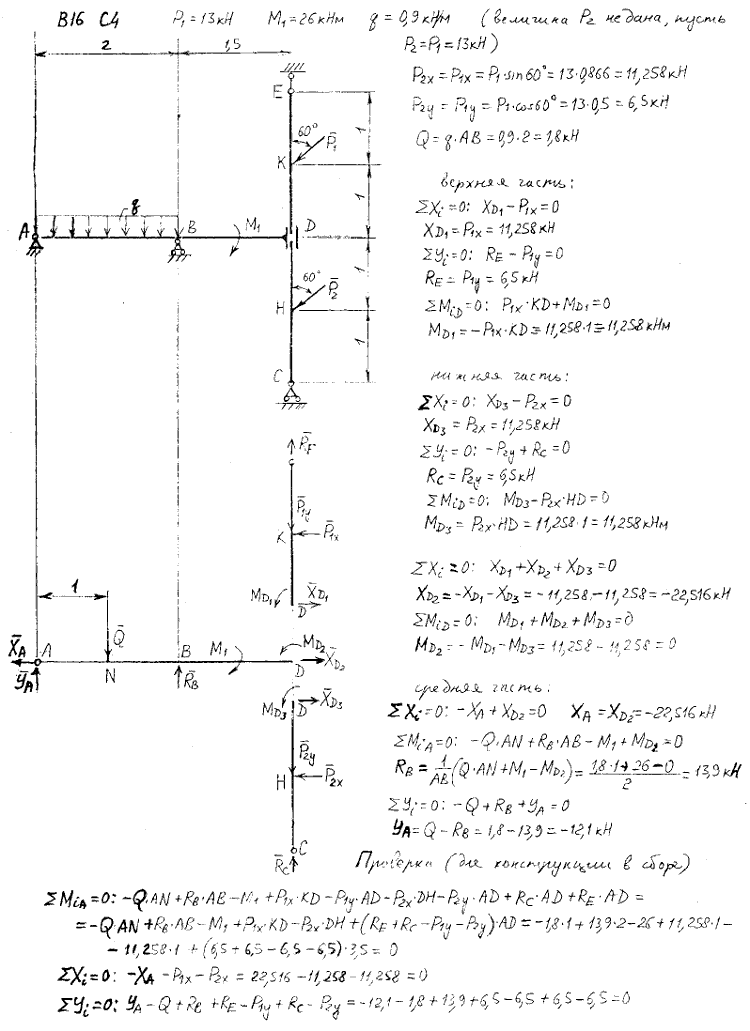 В16 С4 P₁=13кН M₁=26кНм q=0,9кН/м (величина P₂ не дана, пусть
P₂=P₁=13кН)
P₂ₓ=P₁ₓ=P₁·sin60°=13·0,866=11,258кН
P₂y=P₁y=P₁·cos60°=13·0,5=6,5кН
Q=q·AB=0,9·2=1,8кН
2
1,5
E
60°
P̄₁
K
1
1
q
A
B
M₁
D
60°
P̄₂
H
1
1
C
верхняя часть:
ΣXᵢ=0: X_D1-P₁ₓ=0
X_D1=P₁ₓ=11,258кН
ΣYᵢ=0: R_E-P₁y=0
R_E=P₁y=6,5кН
ΣM_iD=0: P₁ₓ·KD+M_D1=0
M_D1=-P₁ₓ·KD=11,258·1=11,258кНм
нижняя часть:
ΣXᵢ=0: X_D3-P₂ₓ=0
X_D3=P₂ₓ=11,258кН
ΣYᵢ=0: -P₂y+R_C=0
R_C=P₂y=6,5кН
ΣM_iD=0: M_D3-P₂ₓ·HD=0
M_D3=P₂ₓ·HD=11,258·1=11,258кНм
ΣXᵢ=0: X_D1+X_D2+X_D3=0
X_D2=-X_D1-X_D3=-11,258-11,258=-22,516кН
ΣM_iD=0: M_D1+M_D2+M_D3=0
M_D2=-M_D1-M_D3=11,258-11,258=0
P̄₁y
K
P̄₁ₓ
M_D1
X̄_D1
D
1
Q̄
X̄_A
A
B
M₁
M_D2
X̄_D2
Ȳ_A
N
R̄_B
D
M_D3
D
X̄_D3
P̄₂y
H
P̄₂ₓ
C
R̄_C
средняя часть:
ΣXᵢ=0: -X_A+X_D2=0 X_A=X_D2=-22,516кН
ΣM_iA=0: -Q·AN+R_B·AB-M₁+M_D2=0
R_B=1/AB(Q·AN+M₁-M_D2)=(1,8·1+26-0)/2=13,9кН
ΣYᵢ=0: -Q+R_B+Y_A=0
Y_A=Q-R_B=1,8-13,9=-12,1кН
Проверка (для конструкции в сборе)
ΣM_iA=0: -Q·AN+R_B·AB-M₁+P₁ₓ·KD-P₁y·AD-P₂ₓ·DH-P₂y·AD+R_C·AD+R_E·AD=
=-Q·AN+R_B·AB-M₁+P₁ₓ·KD-P₂ₓ·DH+(R_E+R_C-P₁y-P₂y)·AD=-1,8·1+13,9·2-26+11,258·1-
-11,258·1+(6,5+6,5-6,5-6,5)·3,5=0
ΣXᵢ=0: -X_A-P₁ₓ-P₂ₓ=22,516-11,258-11,258=0
ΣYᵢ=0: Y_A-Q+R_B+R_E-P₁y+R_C-P₂y=-12,1-1,8+13,9+6,5-6,5+6,5-6,5=0